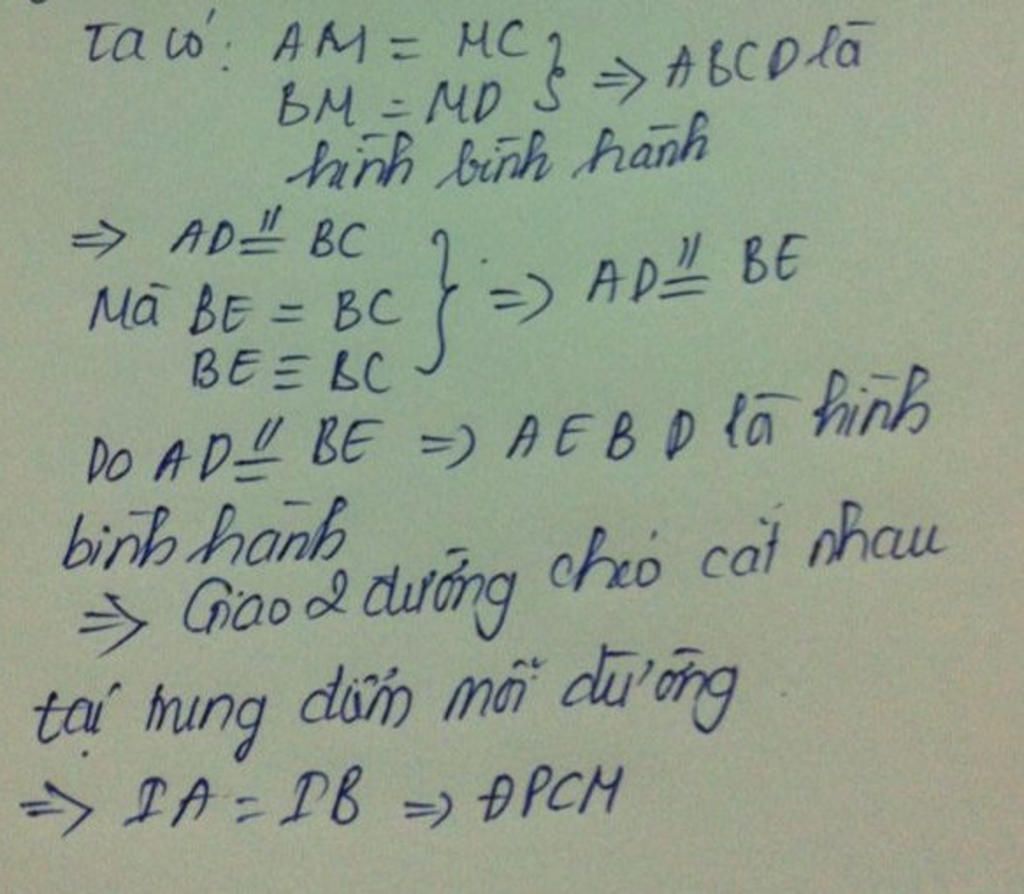 Ta có: AM = MC } => ABCD là
BM = MD
hình bình hành
=> AD // = BC
Mà BE = BC } => AD // = BE
BE ≡ BC
Do AD // = BE => AEBD là hình
bình hành
=> Giao 2 đường chéo cắt nhau
tại trung điểm mỗi đường
=> IA = IB => ĐPCM